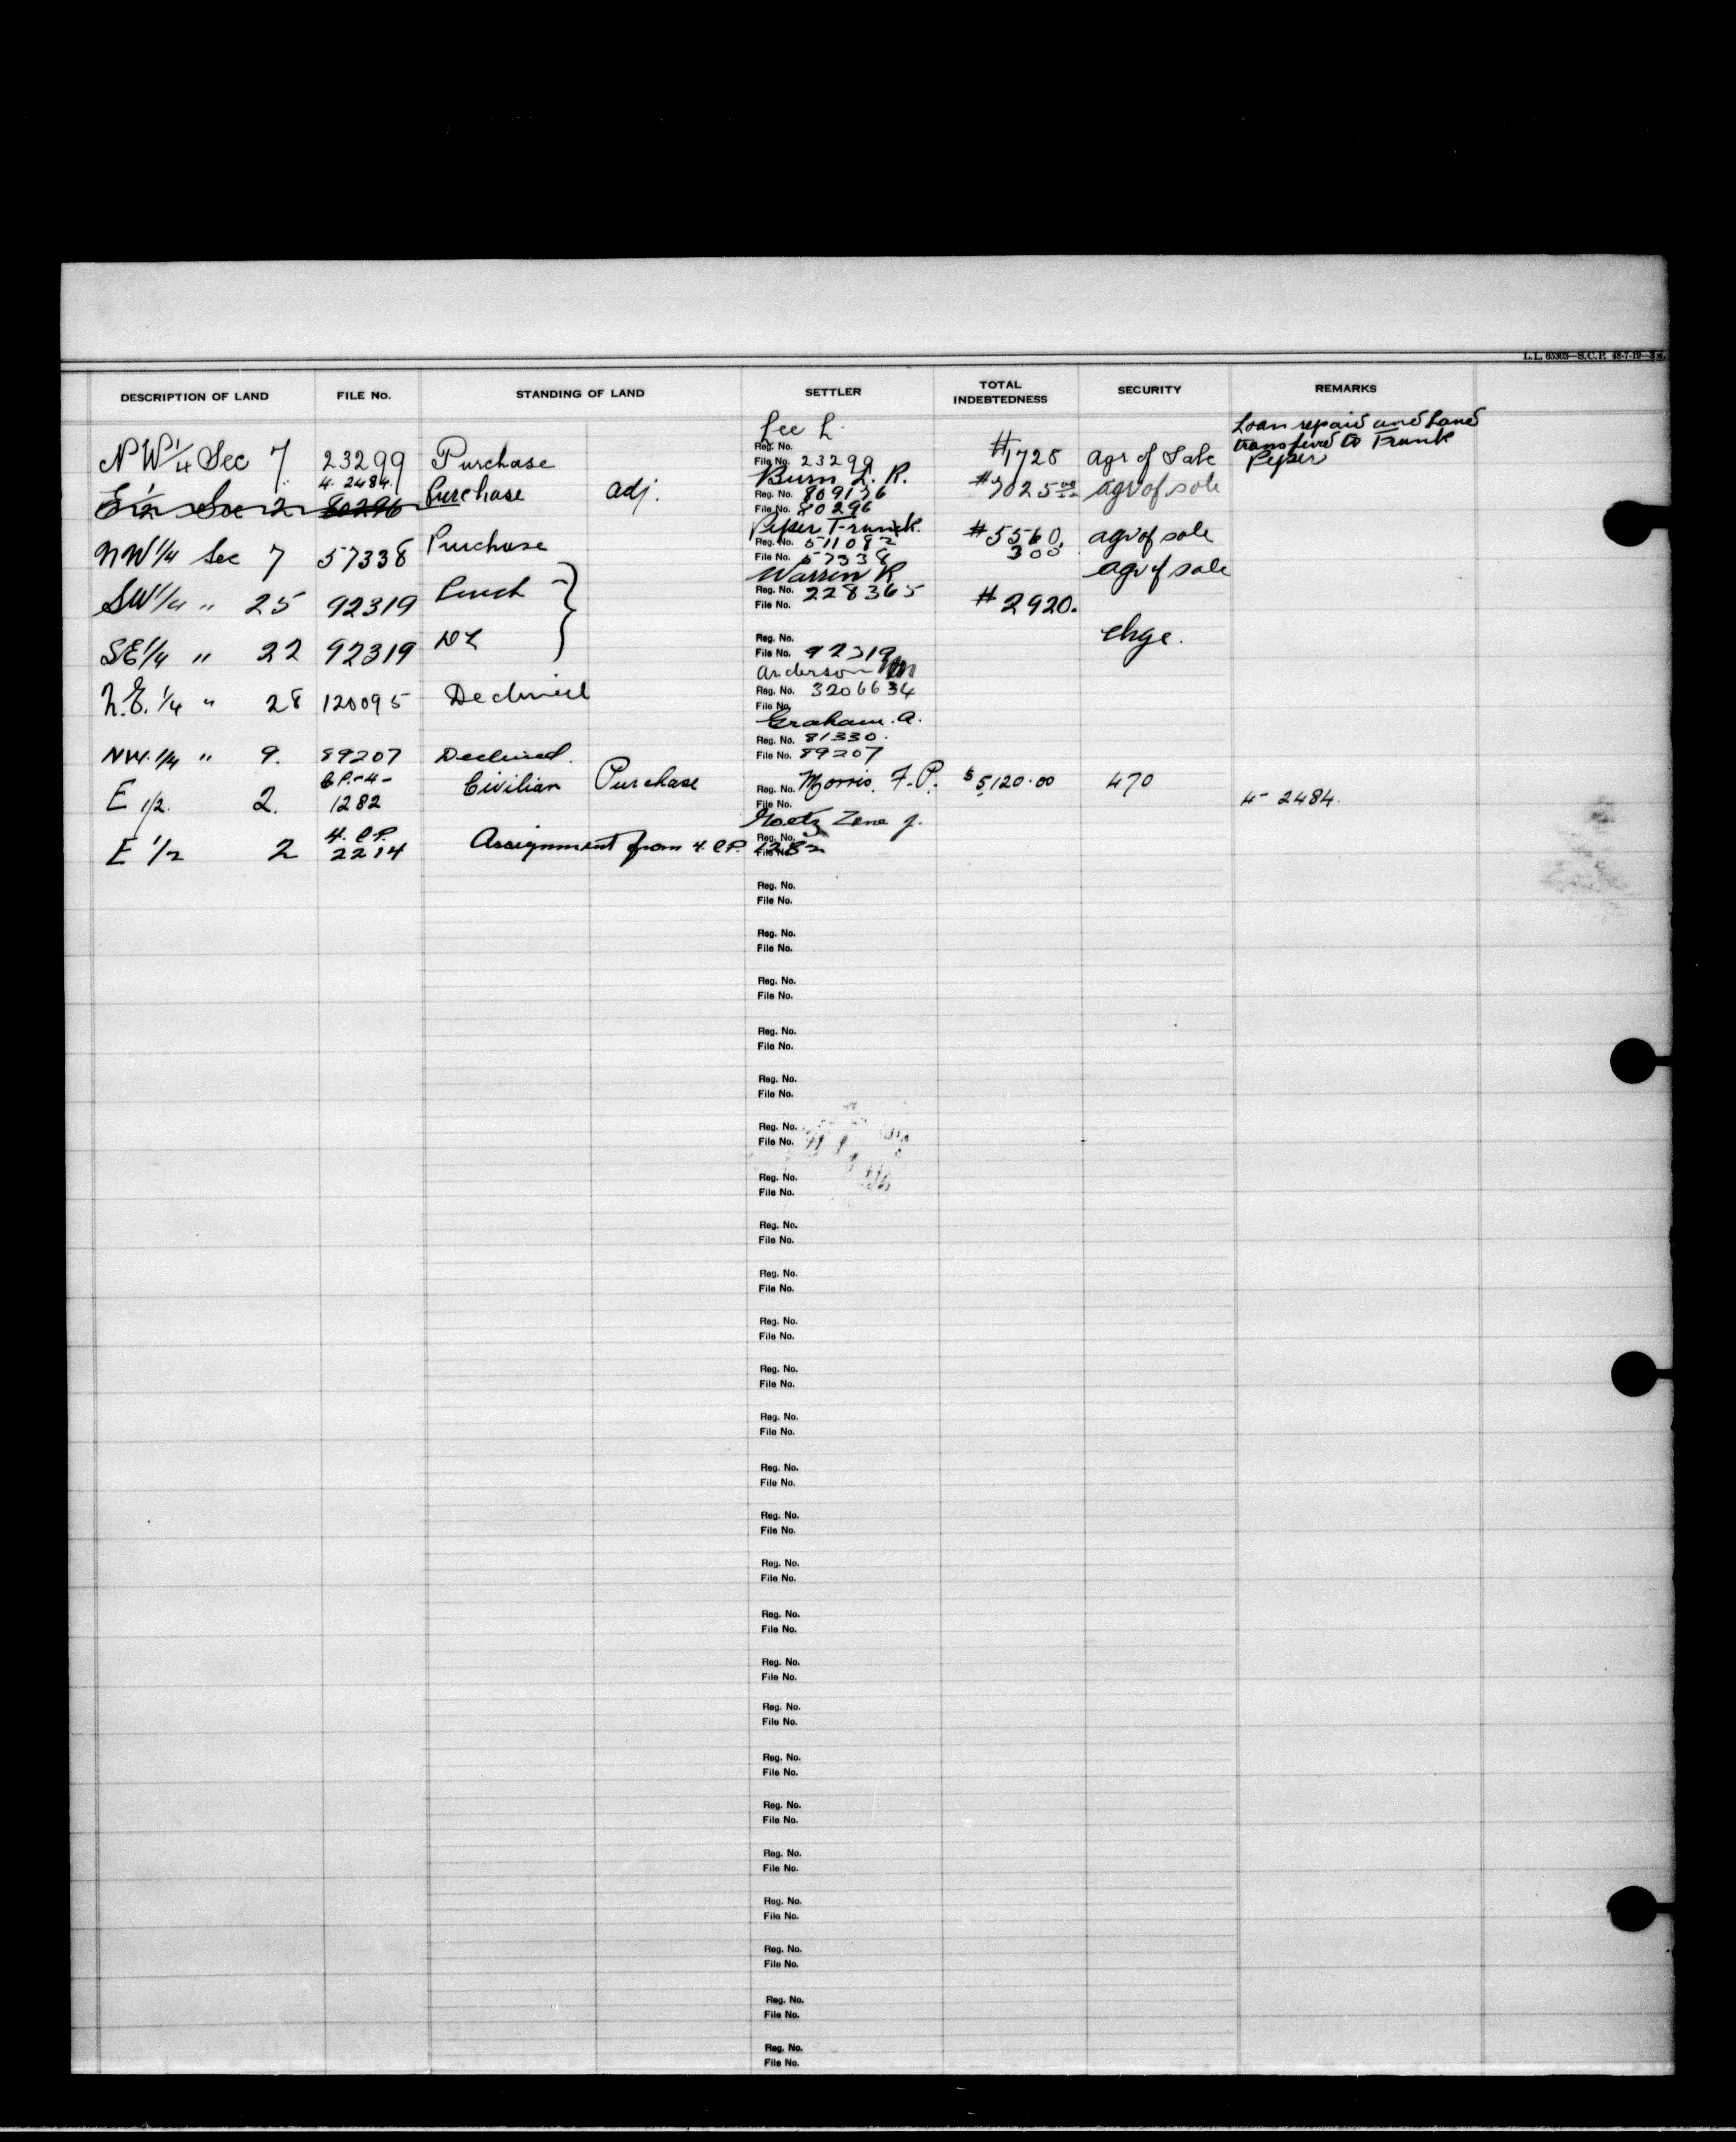 L.L. 65303—S.C.P. 48-7-19—3M.
DESCRIPTION OF LAND FILE No. STANDING OF LAND SETTLER TOTAL INDEBTEDNESS SECURITY REMARKS
Lee L.
Loan repaid and Land
transfered to Frank
Peper
Reg. No.
NW 1/4 Sec 7 23299 Purchase File No. 23299 $1728 agr of Sale
4. 2484.
Burn L. R.
E 1/2 Sec 2 80296 Purchase adj. Reg. No. 809136 $7025 00 agr of sale
File No. 80296
Peper Frank.
NW 1/4 Sec 7 57338 Purchase Reg. No. 511092 $5560. agr of sale
File No. 57338 300
Warren R agr of sale
SW 1/4 " 25 92319 Purch Reg. No. 228365 $2920.
File No.
SE 1/4 " 22 92319 DL Reg. No. chge.
File No. 92319
Anderson Wm
N.E. 1/4 " 28 120095 Declined Reg. No. 3206634
File No.
Graham. A.
NW. 1/4 " 9. 89207 Declined. Reg. No. 81330.
File No. 89207
C.P.-4-
E 1/2. 2. 1282 Civilian Purchase Reg. No. Morris, F.P. $5,120.00 470
File No. 4- 2484.
Goetz Zena J.
4. C.P. Reg. No.
E 1/2 2 2214 Assignment from 4. C.P. 1282
File No.
Reg. No.
File No.
Reg. No.
File No.
Reg. No.
File No.
Reg. No.
File No.
Reg. No.
File No.
Reg. No.
File No.
Reg. No.
File No.
Reg. No.
File No.
Reg. No.
File No.
Reg. No.
File No.
Reg. No.
File No.
Reg. No.
File No.
Reg. No.
File No.
Reg. No.
File No.
Reg. No.
File No.
Reg. No.
File No.
Reg. No.
File No.
Reg. No.
File No.
Reg. No.
File No.
Reg. No.
File No.
Reg. No.
File No.
Reg. No.
File No.
Reg. No.
File No.
Reg. No.
File No.
Reg. No.
File No.